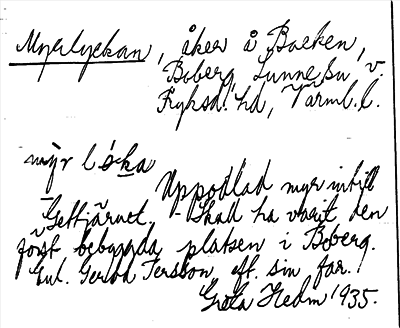 Myrlyckan, åker å Backen,
Boberg, Sunne sn, v.
Fryksd. hd, Värml. l.
myr l
Uppodlad myr intill
Gettjärnet, - Skall ha varit den
först bebyggda platsen i Boberg.
Enl. Persson, eft. sin far.
Hedm 1935.